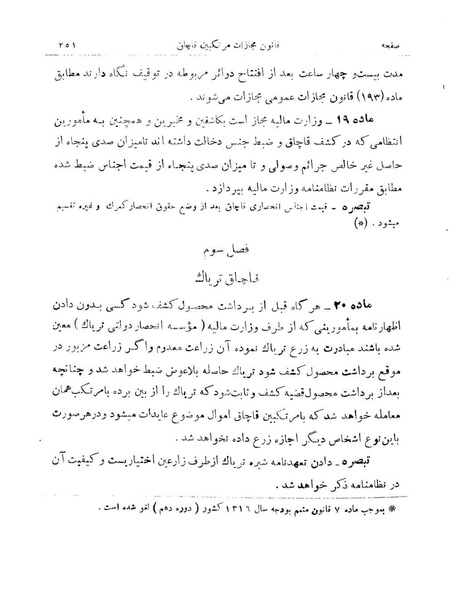 صفحه قانون مجازات مرتکبین قاچاق ۲۵۱
مدت بیست و چهار ساعت بعد از افتتاح دوائر مربوطه در توقیف نگاه دارند مطابق
ماده (۱۹۳) قانون مجازات عمومی مجازات می‌شوند.
ماده ۱۹ ـ وزارت مالیه مجاز است بکاشفین و مخبرین و همچنین به مأمورین
انتظامی که در کشف قاچاق و ضبط جنس دخالت داشته اند تامیزان صدی پنجاه از
حاصل غیر خالص جرائم وصولی و تا میزان صدی پنجاه از قیمت اجناس ضبط شده
مطابق مقررات نظامنامه وزارت مالیه بپردازد.
تبصره ـ قیمت اجناس انحصاری قاچاق بعد از وضع حقوق انحصار گمرک و غیره تقسیم
میشود. (*)
فصل سوم
قاچاق تریاك
ماده ۲۰ ـ هر گاه قبل از برداشت محصول کشف شود کسی بدون دادن
اظهار نامه بمأمورینی که از طرف وزارت مالیه (مؤسسه انحصار دولتی تریاك) معین
شده باشند مبادرت به زرع تریاك نموده آن زراعت معدوم واگر زراعت مزبور در
موقع برداشت محصول کشف شود تریاك حاصله بلاعوض ضبط خواهد شد و چنانچه
بعداز برداشت محصول قضیه کشف و ثابت شود که تریاك را از بین برده بامرتکب همان
معامله خواهد شد که بامرتکبین قاچاق اموال موضوع عایدات میشود ودرهرصورت
باین نوع اشخاص دیگر اجازه زرع داده نخواهد شد.
تبصره ـ دادن تعهدنامه شیره تریاك ازطرف زارعین اختیاریست و کیفیت آن
در نظامنامه ذکر خواهد شد.
* بموجب ماده ۷ قانون متمم بودجه سال ۱۳۱۶ کشور (دوره دهم) لغو شده است.